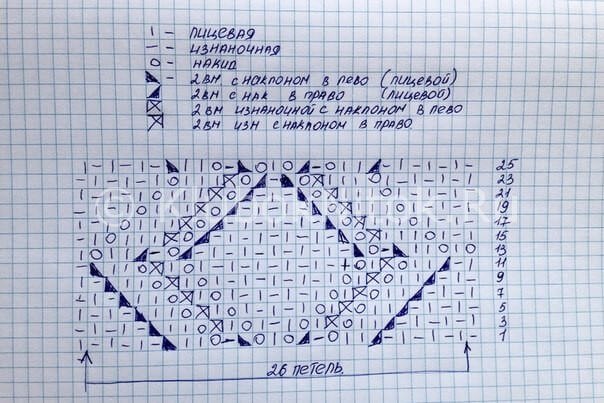 I - ЛИЦЕВАЯ
- - ИЗНАНОЧНАЯ
О - НАКИД
- 2ВМ С НАКЛОНОМ В ЛЕВО (ЛИЦЕВОЙ)
- 2ВМ С НАК В ПРАВО (ЛИЦЕВОЙ)
2 ВМ ИЗНАНОЧНОЙ С НАКЛОНОМ В ЛЕВО
2ВМ ИЗН С НАКЛОНОМ В ПРАВО
25
23
21
19
17
15
13
11
9
7
5
3
1
26 ПЕТЕЛЬ.